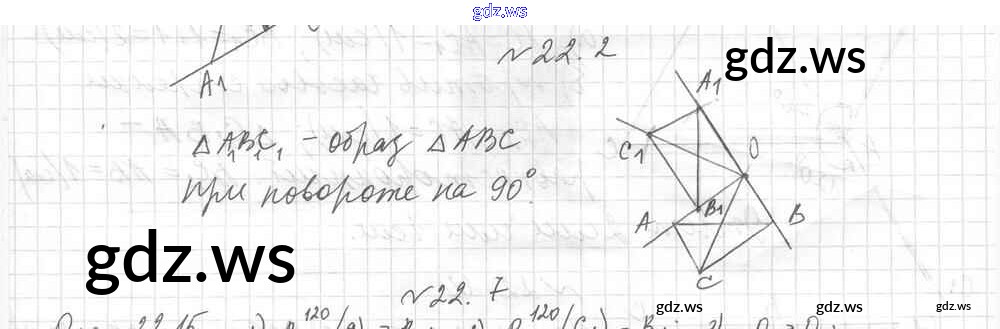 gdz.ws
№22.2
gdz.ws
A1
△A₁B₁C₁ - образ △ABC
при повороте на 90°.
A1
C1
O
B1
A
B
C
gdz.ws
№22.7
gdz.ws
gdz.ws
gdz.ws